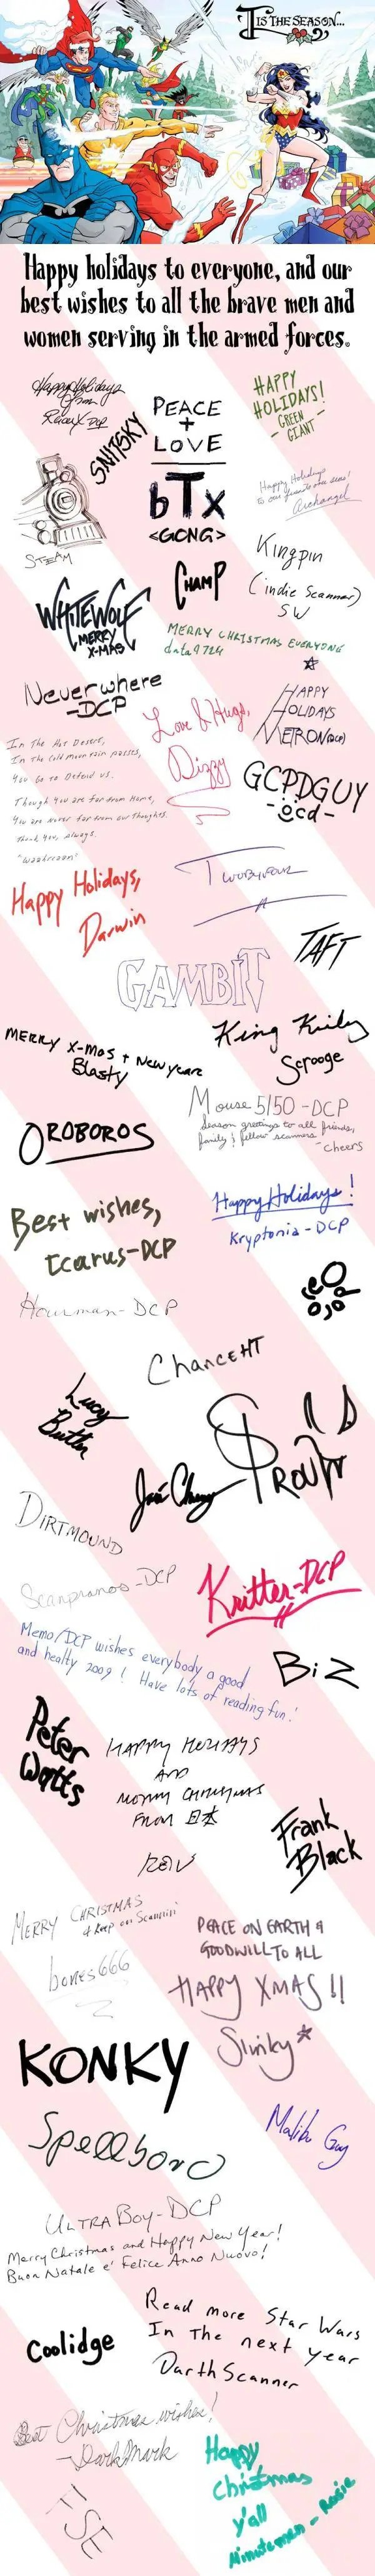 TIS THE SEASON...
Happy holidays to everyone, and our
best wishes to all the brave men and
women serving in the armed forces.
Happy Holidays
from
RacerX-DCP
SNITSKY
PEACE
+
LOVE
bTx
<GCNG>
HAPPY
HOLIDAYS!
- GREEN
GIANT -
STEAM
Happy Holidays
Archangel
CHAMP
Kingpin
(indie scanner)
SW
WHITEWOLF
MERRY
X-MAS
MERRY CHRISTMAS EVERYONE
data9724
Neverwhere
-DCP
Love & Hugs,
Dizzy
HAPPY
HOLIDAYS
METRON(DCP)
In The Hot Desert,
In The Cold Mountain passes,
You Go To Defend us.
Though You are far from Home,
You are Never far from our Thoughts.
Thank You, Always.
GCPDGUY
-ocd-
Happy Holidays,
Darwin
Twobyfour
TAFT
GAMBIT
King Kirby
Scrooge
MERRY X-Mas + New year
Blasty
Mouse 5150-DCP
Season greetings to all friends,
family & fellow scanners
-cheers
OROBOROS
Happy Holidays!
Kryptonia-DCP
Best wishes,
Icarus-DCP
Hourman-DCP
ChanceHT
Lucy
Butler
PROUTY
DIRTMOUND
Kritter-DCP
Scanpranos-DCP
Memo/DCP wishes everybody a good
and healty 2009! Have lots of reading fun!
BiZ
Peter
Watts
HAPPY HOLIDAYS
AND
MERRY CHRISTMAS
FROM 日本
Frank
Black
MERRY CHRISTMAS
& Keep on Scannin'
bones666
PEACE ON EARTH &
GOODWILL TO ALL
HAPPY XMAS!!
Slinky
KONKY
Malibu Guy
Spellboro
ULTRABOY-DCP
Merry Christmas and Happy New Year!
Buon Natale e' Felice Anno Nuovo!
Read more Star Wars
In The next year
DarthScanner
Coolidge
Best Christmas wishes!
-DarkMark
Happy
Christmas
y'all
Minutemen - Rosie
FSE